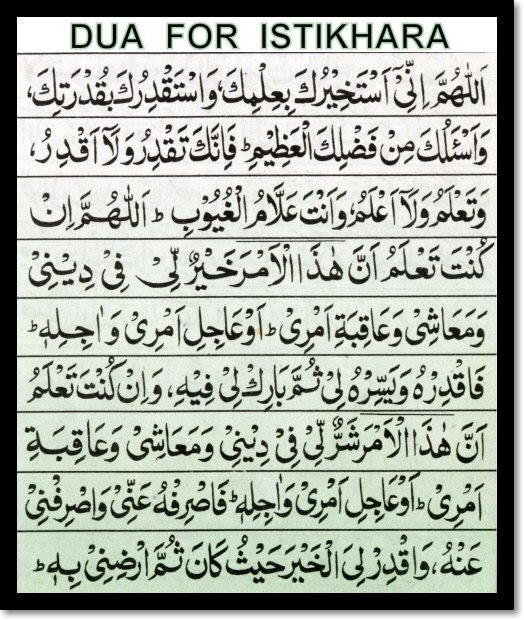 DUA FOR ISTIKHARA
اَللّٰهُمَّ اِنِّيْٓ اَسْتَخِيْرُكَ بِعِلْمِكَ، وَاسْتَقْدِرُكَ بِقُدْرَتِكَ،
وَاَسْئَلُكَ مِنْ فَضْلِكَ الْعَظِيْمِ ؕ فَاِنَّكَ تَقْدِرُ وَلَآ اَقْدِرُ،
وَتَعْلَمُ وَلَآ اَعْلَمُ وَاَنْتَ عَلَّامُ الْغُيُوْبِ ؕ اَللّٰهُمَّ اِنْ
كُنْتَ تَعْلَمُ اَنَّ هٰذَا الْاَمْرَ خَيْرٌ لِّيْ فِيْ دِيْنِيْ
وَمَعَاشِيْ وَعَاقِبَةِ اَمْرِيْ ؕ اَوْ عَاجِلِ اَمْرِيْ وَاٰجِلِهٖ ؕ
فَاقْدِرْهُ وَيَسِّرْهُ لِيْ ثُمَّ بَارِكْ لِيْ فِيْهِ، وَاِنْ كُنْتَ تَعْلَمُ
اَنَّ هٰذَا الْاَمْرَ شَرٌّ لِّيْ فِيْ دِيْنِيْ وَمَعَاشِيْ وَعَاقِبَةِ
اَمْرِيْ ؕ اَوْ عَاجِلِ اَمْرِيْ وَاٰجِلِهٖ ؕ فَاصْرِفْهُ عَنِّيْ وَاصْرِفْنِيْ
عَنْهُ، وَاقْدِرْ لِيَ الْخَيْرَ حَيْثُ كَانَ ثُمَّ ارْضِنِيْ بِهٖ ؕ